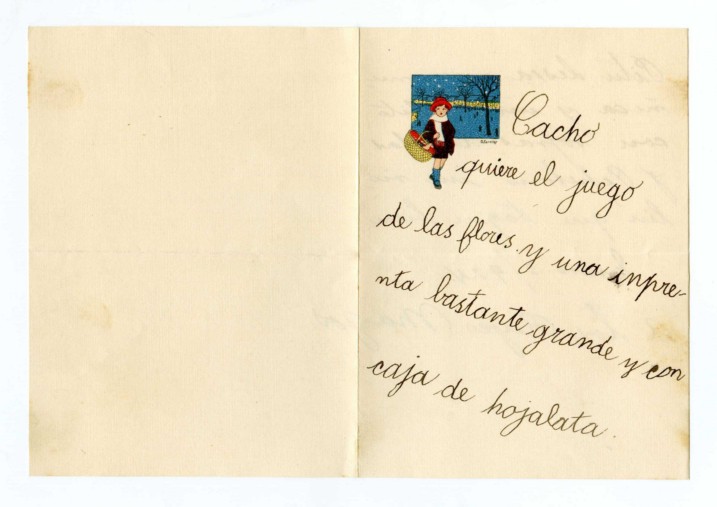 Cacho
quiere el juego
de las flores y una inpre-
nta bastante grande y con
caja de hojalata.